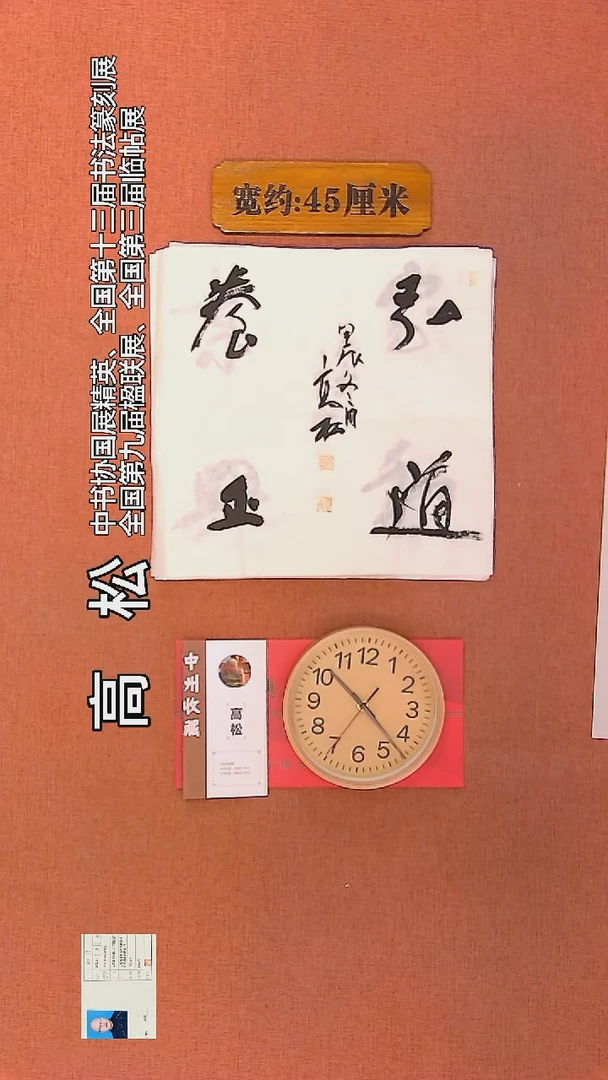 宽约:45厘米
弘道
養正
甲辰冬月
高松
高 松
中书协国展精英、全国第十三届书法篆刻展
全国第九届楹联展、全国第三届临帖展
高松
12
1
2
3
4
5
6
7
8
9
10
11